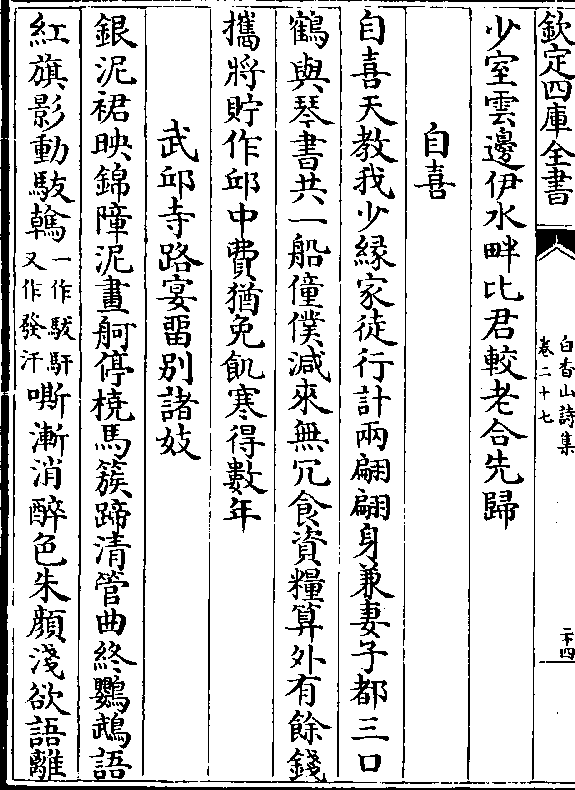 欽定四庫全書
白香山詩集
卷二十七
二十四
少室雲邊伊水畔比君較老合先歸
自喜
自喜天教我少緣家徒行計兩翩翩身兼妻子都三口
鶴與琴書共一船僮僕減來無冗食資糧算外有餘錢
攜將貯作邱中費猶免飢寒得數年
武邱寺路宴畱别諸妓
銀泥裙映錦障泥畫舸停橈馬簇蹄清管曲終鸚鵡語
紅旗影動䮧一作馯又作發汗嘶漸消醉色朱顔淺欲語離